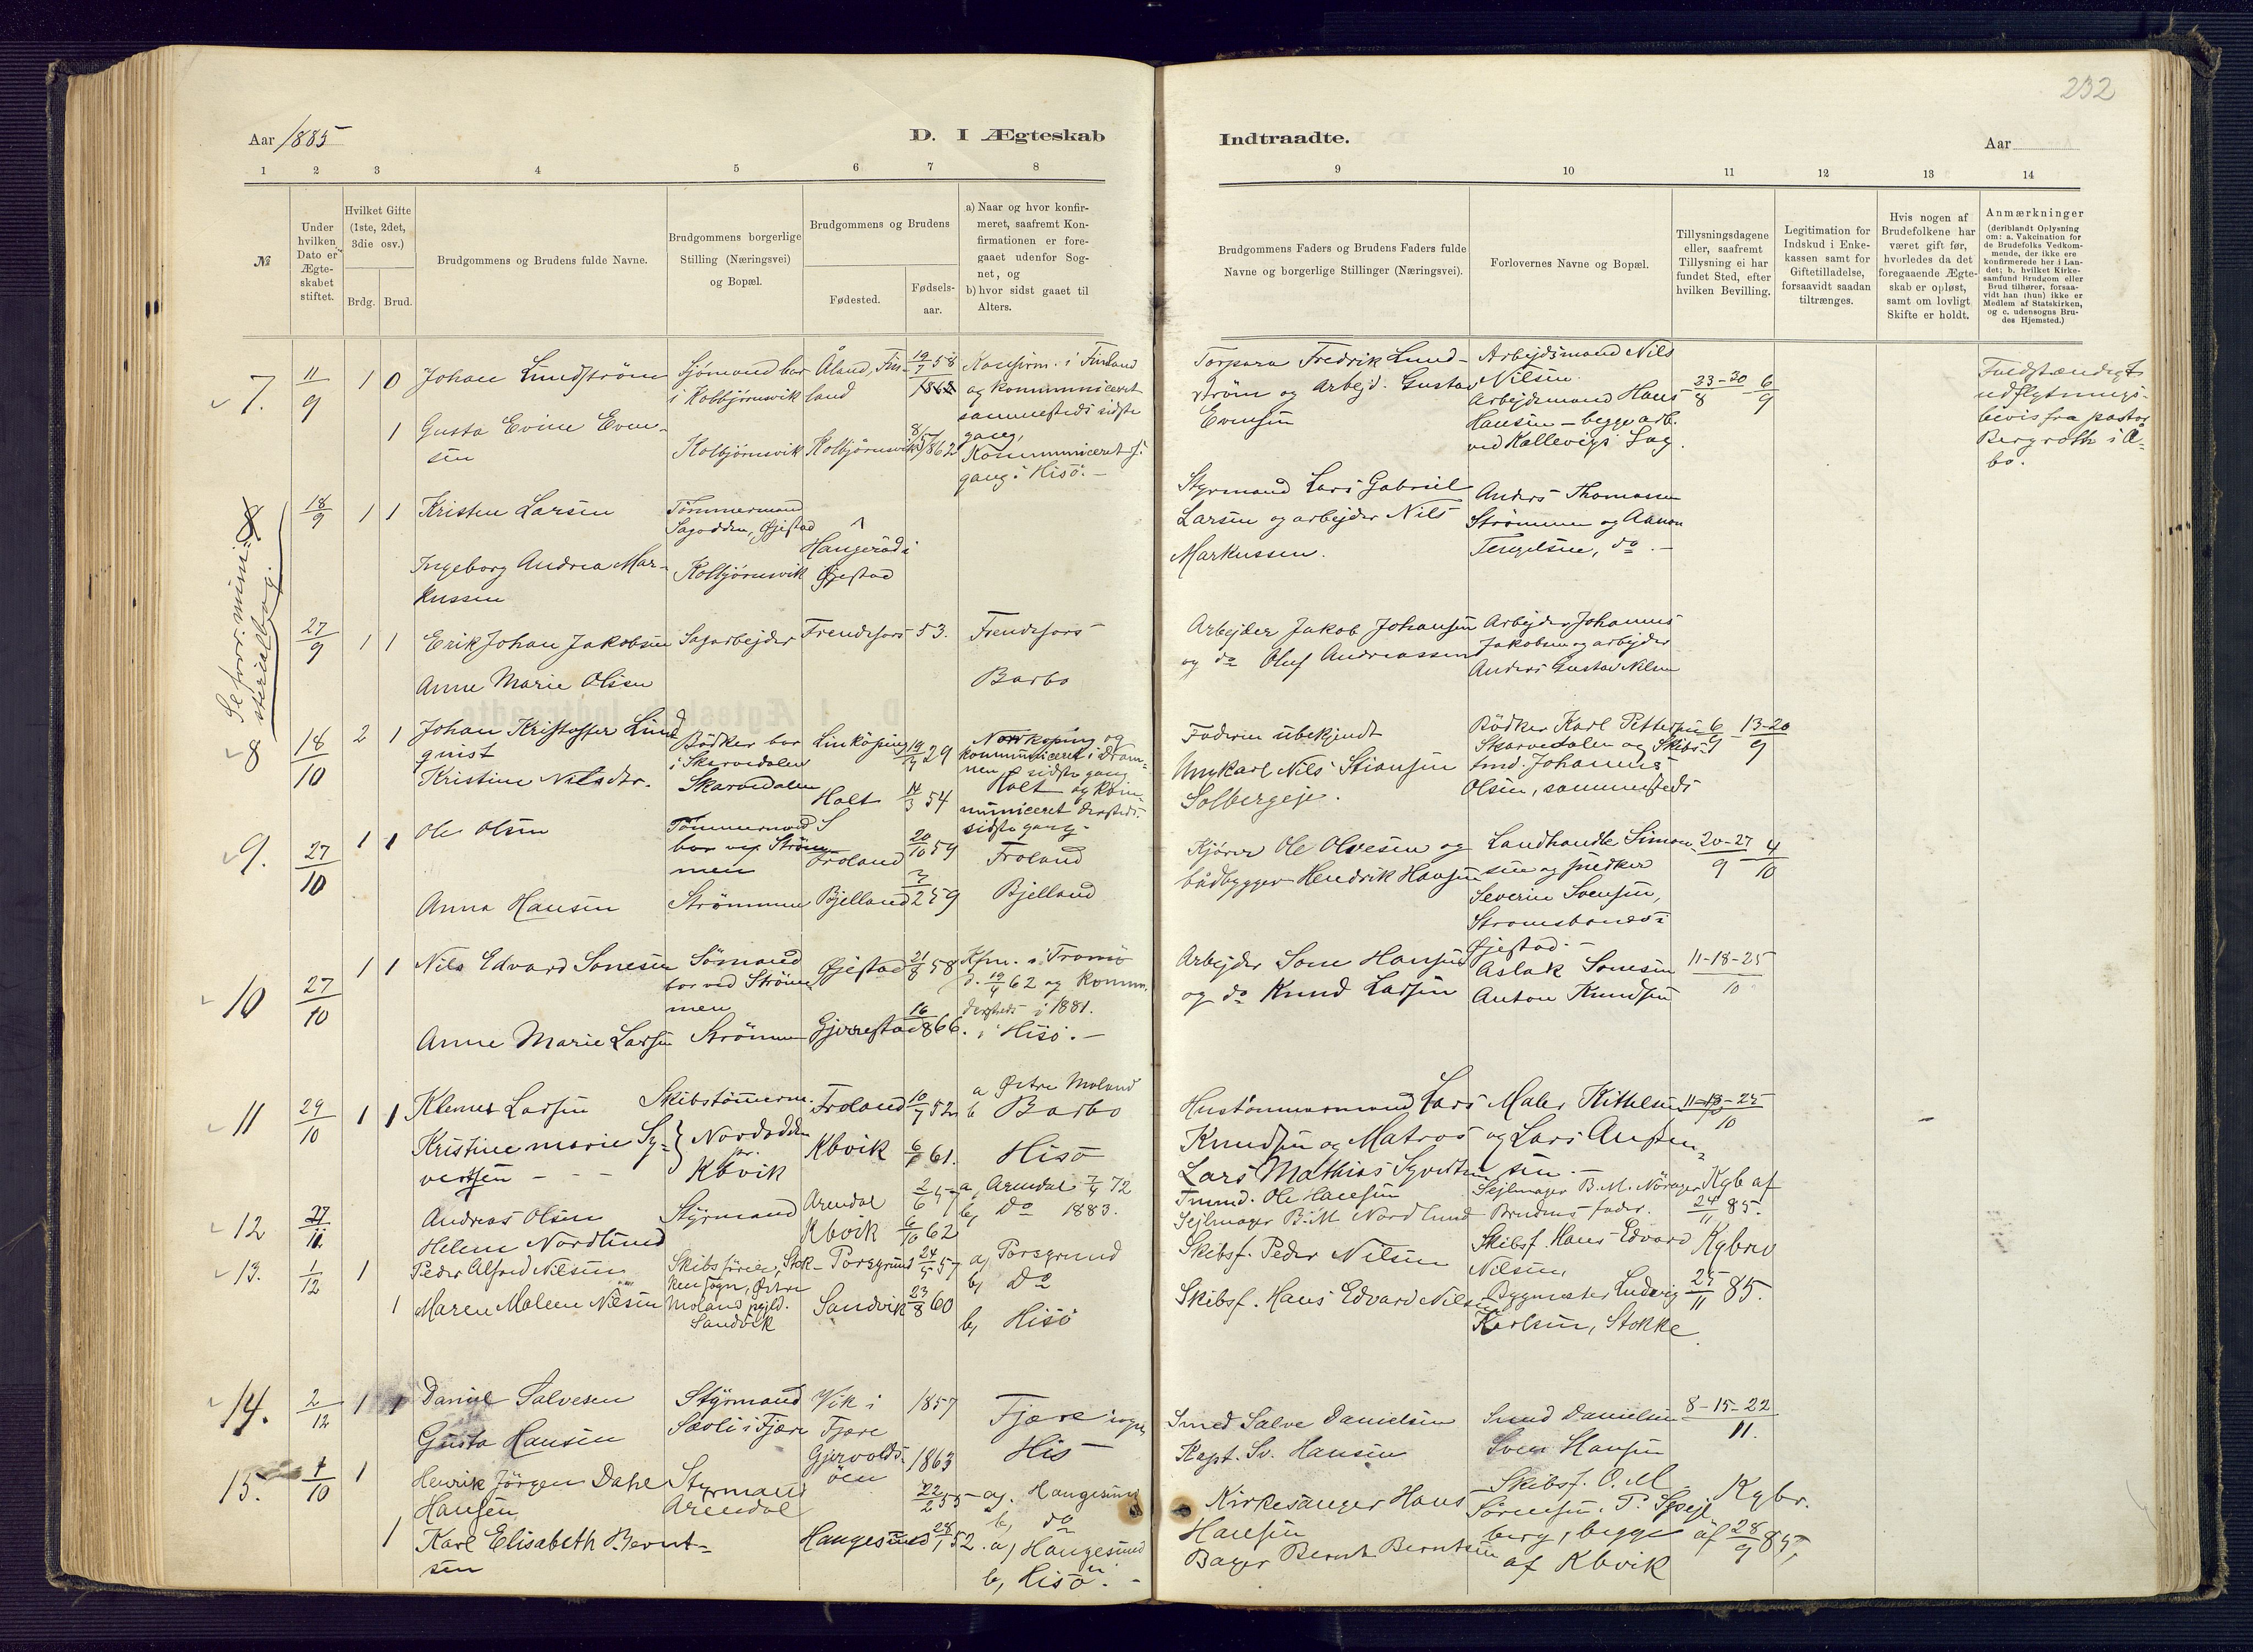 232
Aar 1885
D. I Ægteskab
Indtraadte.
Aar
1 2 3 4 5 6 7 8
9 10 11 12 13 14
№
Under
hvilken
Dato er
Ægte-
skabet
stiftet.
Hvilket Gifte
(1ste, 2det,
3die osv.)
Brdg. Brud.
Brudgommens og Brudens fulde Navne.
Brudgommens borgerlige
Stilling (Næringsvei)
og Bopæl.
Brudgommens og Brudens
Fødested.
Fødsels-
aar.
a) Naar og hvor konfir-
meret, saafremt Kon-
firmationen er fore-
gaaet udenfor Sog-
net, og
b) hvor sidst gaaet til
Alters.
Brudgommens Faders og Brudens Faders fulde
Navne og borgerlige Stillinger (Næringsvei).
Forlovernes Navne og Bopæl.
Tillysningsdagene
eller, saafremt
Tillysning ei har
fundet Sted, efter
hvilken Bevilling.
Legitimation for
Indskud i Enke-
kassen samt for
Giftetilladelse,
forsaavidt saadan
tiltrænges.
Hvis nogen af
Brudefolkene har
været gift før,
hvorledes da det
foregaaende Ægte-
skab er opløst,
samt om lovligt
Skifte er holdt.
Anmærkninger
(deriblandt Oplysning
om: a. Vakcination for
de Brudefolks Vedkom-
mende, der ikke ere
konfirmerede her i Lan-
det; b. hvilket Kirke-
samfund Brudgom eller
Brud tilhører, forsaa-
vidt han (hun) ikke er
Medlem af Statskirken,
og c. udensogns Bru-
des Hjemsted.)
7. 11/9 1 0
Johan Lundström
Gusta Evine Even-
sen
1
Sjömand bor
i Kolbjörnsvik
Kolbjörnsvik
Åland, Fin-
land
Kolbjörnsvik
19/7 58
8/5 1862
Konfirm. i Finland
og kommuniceret
sammesteds sidste
gang,
Kommuniceret s.
gang i Hisö. —
Torpara Fredrik Lund-
ström og Arbejd. Gustav
Evensen
Arbejdsmand Nils
Nilsen
Arbejdsmand Hans
Hansen — begge arb.
ved Kallevigs Sag.
23-30/8 6/9
Fuldstændigt
udflytnings-
bevis fra pastor
Bergroth i Å-
bo.
8
18/9 1 1
Kristen Larsen
Ingeborg Andrea Mar-
kussen
Tömmermand
Sagodden, Øjestad
Kolbjörnsvik
Haugeröd i
Øjestad
Styrmand Lars Gabriel
Larsen og arbejder Nils
Markussen.
Anders Thomassen
Strömmen og Aanon
Tengelsen, do. —
27/9 1 1
Erik Johan Jakobsen
Anne Marie Olsen
Sagarbejder
Frendefors 53.
Frendefors
Barbo
Arbejder Jakob Johansen
og do Oluf Andreassen
Arbejder Johannes
Jakobsen og arbejder
Anders Gustav Nilsen
8 18/10 2 1
Johan Kristoffer Lind
quist
Kristine Nilsdtr.
Bödker bor
i Skarvedalen
Skarvedalen
Linköping
Holt
29
14/3 54
Norrköping og
kommuniceret i Dram-
men sidste gang
Holt og kom-
municeret dersteds
sidste gang.
Faderen ubekjendt
Ungkarl Nils Stiansen
Solbergeje.
Bödker Karl Pettersen
Skarvedalen og Skibs-
tmd. Johannes
Olsen, sammesteds
6/9 13-20/9
9. 27/10 1 1
Ole Olsen
Anna Hansen
Tömmermand
bor ved Ström-
men
Strömmen
Froland
Bjelland
20/10 59
3/2 59
Froland
Bjelland
Kjörer Ole Olvesen og
bådbygger Hendrik Hansen
Landhandle Simon-
sen og snedker
Severin Svensen,
Stromsbones i
Øjestad. —
20-27/9 4/10
10 27/10 1 1
Nils Edvard Sonesen
Anne Marie Larsen
Sömand
bor ved Ström-
men
Strömmen
Øjestad
Gjerrestad
21/8 58
16/8 66.
Kfm. i Tromö
og komm.
dersteds i 1881.
i Hisö. —
Arbejder Sone Hansen
og do Knud Larsen
Aslak Sonesen
Anton Knudsen
11-18-25/10
11 29/10 1 1
Klemet Larsen
Kristine Marie Sy-
vertsen - - -
Skibstömerm.
Nordodden
Kbvik
Froland
Kbvik
10/7 52
61.
a Østre Moland
b Barbo
Hisö
Hustömmermand Lars
Knudsen og Matros
Lars Mathias Syvertsen
Maler Kittelsen
og Lars Austen-
sen. —
11-18-25/10
12 27/11
Andreas Olsen
Helene Nordlund
Styrmand
Arendal
Kbvik
2/6 57
6/10 62
a, Arendal 7/4 72
b, do 1883.
Tmmd. Ole Hansen
Sejlmager B. M. Nordlund
Brudens fader.
Kgb af
24/11 85.
13. 1/12 1
Peder Alfred Nilsen
1 Maren Malene Nilsen
Skibsförer, Stok-
ken sogn, Østre
Molands pgjld.
Sandvik
Porsgrund
Sandvik
24/5 57
23/8 60
a, Porsgrund
b, do
b, Hisö
Skibsf. Peder Nilsen
Skibsf. Hans Edvard Nilsen
Skibsf. Hans Edvard
Nilsen,
Bygmester Ludvig
Karlsen, Stokke
Kgbrev
25/11 85.
14. 2/12 1 1
Daniel Salvesen
Gusta Hansen
Styrmand
Savli i Fjære
Vik i
Fjære
Gjervolds-
öen
1857
1863
Fjære sogn
His
Smed Salve Danielsen
Kapt. Sv. Hansen
Smed Danielsen
Sven Hansen
8-15-22/11.
15. 1/10 1
Henrik Jörgen Dahl
Hansen,
1 Karl Elisabeth Bernt-
sen
Styrmand
Arendal
Haugesund
22/2 55
28/1 52.
a, Haugesund
b, do
a, Haugesund
b, Hisö. —
Kirkesanger Hans
Hansen
Bager Bernt Berntsen
Skibsf. O. M
Sörensen,
berg, begge
af Kbvik
Kgbr.
af 28/9 85,